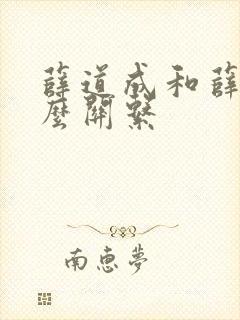 薛道成和薛
麼關繫
南惠夢